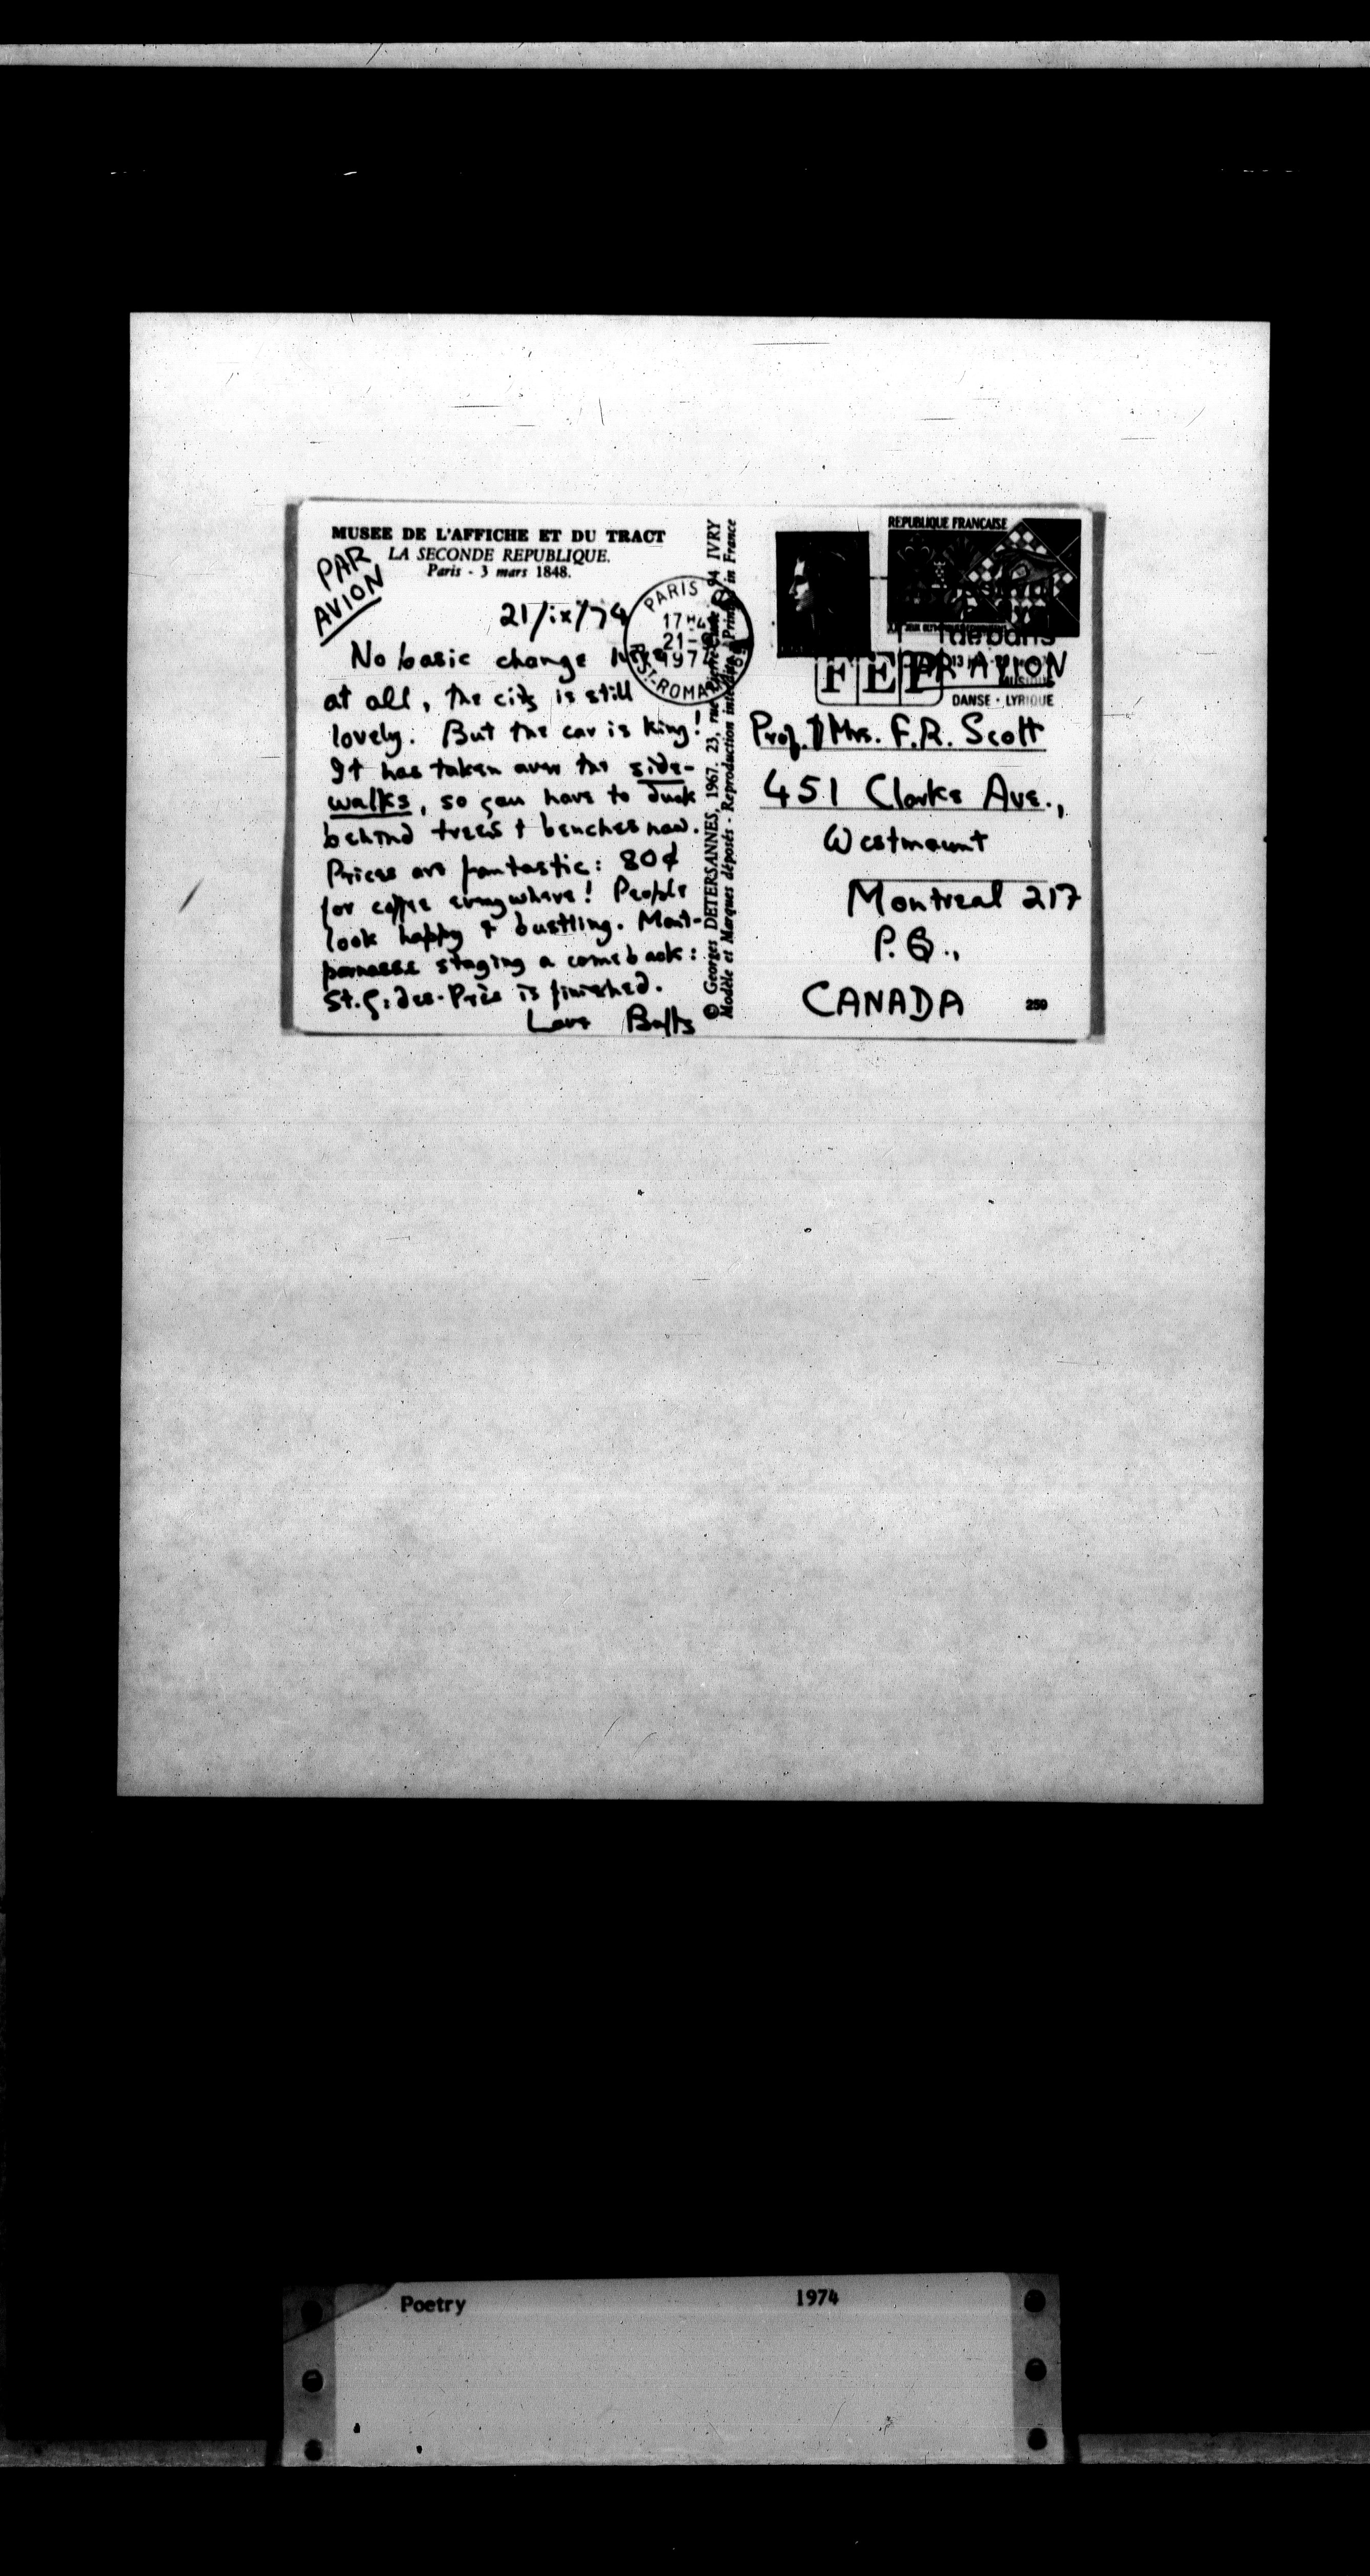 MUSEE DE L'AFFICHE ET DU TRACT
LA SECONDE REPUBLIQUE.
Paris - 3 mars 1848.
PAR
AVION
21/ix/74
No basic change here
at all, the city is still
lovely. But the car is king!
It has taken over the side-
walks, so you have to duck
behind trees + benches now.
Prices are fantastic: 80¢
for coffee everywhere! People
look happy + bustling. Mont-
parnasse staging a comeback:
St. G. des-Près is finished.
Love
© Georges DETERSANNES, 1967. 23, rue 94 IVRY
Modèle et Marques déposés - Reproduction interdite - Printed in France
PARIS
17H
21-9
197
ST-ROMAIN
REPUBLIQUE FRANÇAISE
de paris
PAR AVION
FEP
DANSE - LYRIQUE
Prof. & Mrs. F.R. Scott
451 Clarke Ave.,
Westmount
Montreal 217
P.Q.,
CANADA
259
Poetry 1974